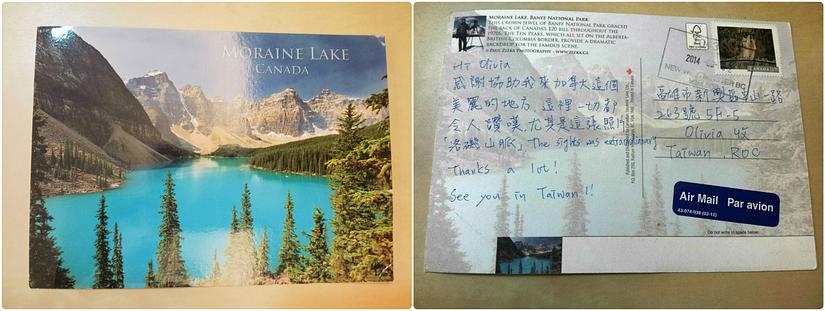 MORAINE LAKE
CANADA
MORAINE LAKE, BANFF NATIONAL PARK:
THIS CROWN JEWEL OF BANFF NATIONAL PARK GRACED
THE BACK OF CANADA'S $20 BILL THROUGHOUT THE
1970S. THE TEN PEAKS, WHICH ALL SIT ON THE ALBERTA-
BRITISH COLUMBIA BORDER, PROVIDE A DRAMATIC
BACKDROP FOR THE FAMOUS SCENE.
© PAUL ZIZKA PHOTOGRAPHY · WWW.ZIZKA.CA
Hi Olivia
感謝協助我來加拿大這個
美麗的地方、這裡一切都
令人讚嘆、尤其是這張照片
「洛磯山脈」The sights was extraordinary
Thanks a lot!
See you in Taiwan!!
2014
高雄市新興區 一路
263號 5F-5
Olivia 收
Taiwan, ROC
Air Mail Par avion
43-074-038 (02-12)
Do not write in space below.